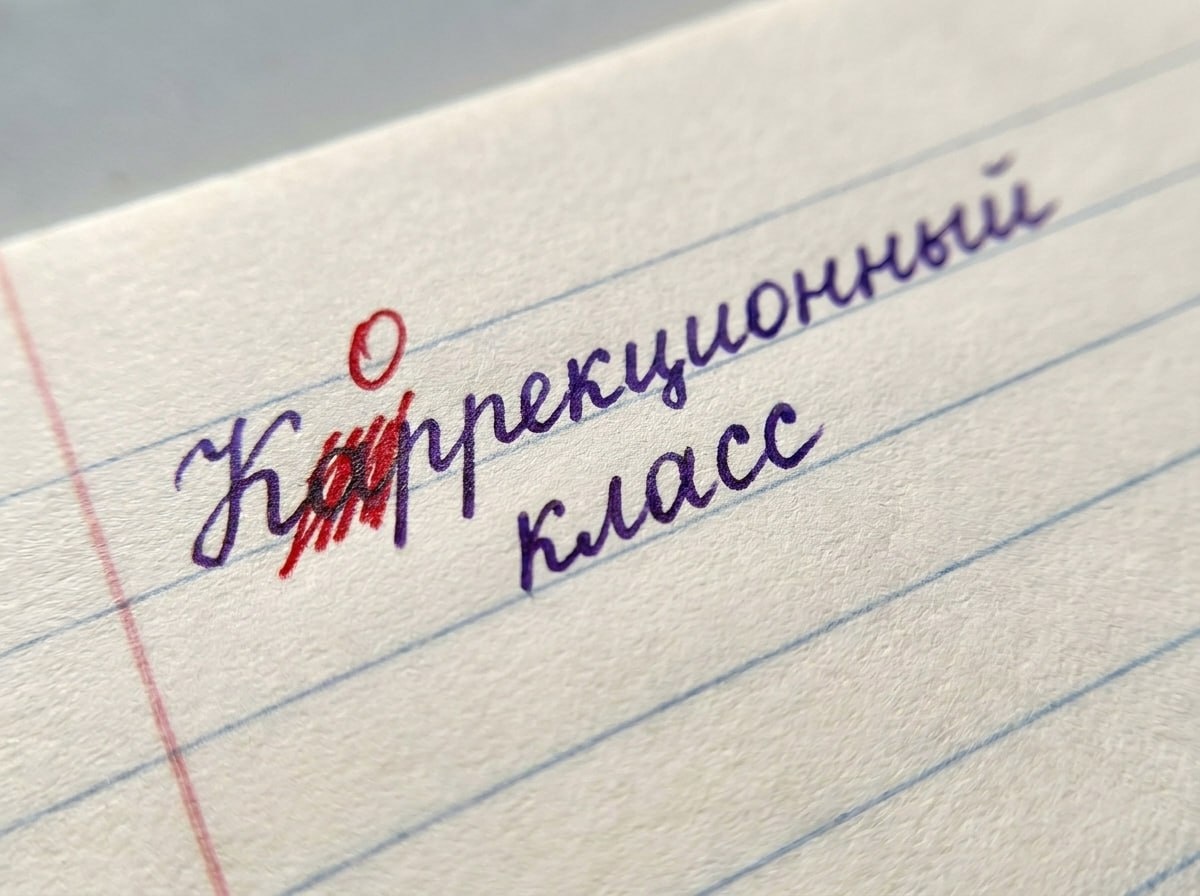 о
Каррекционный
класс